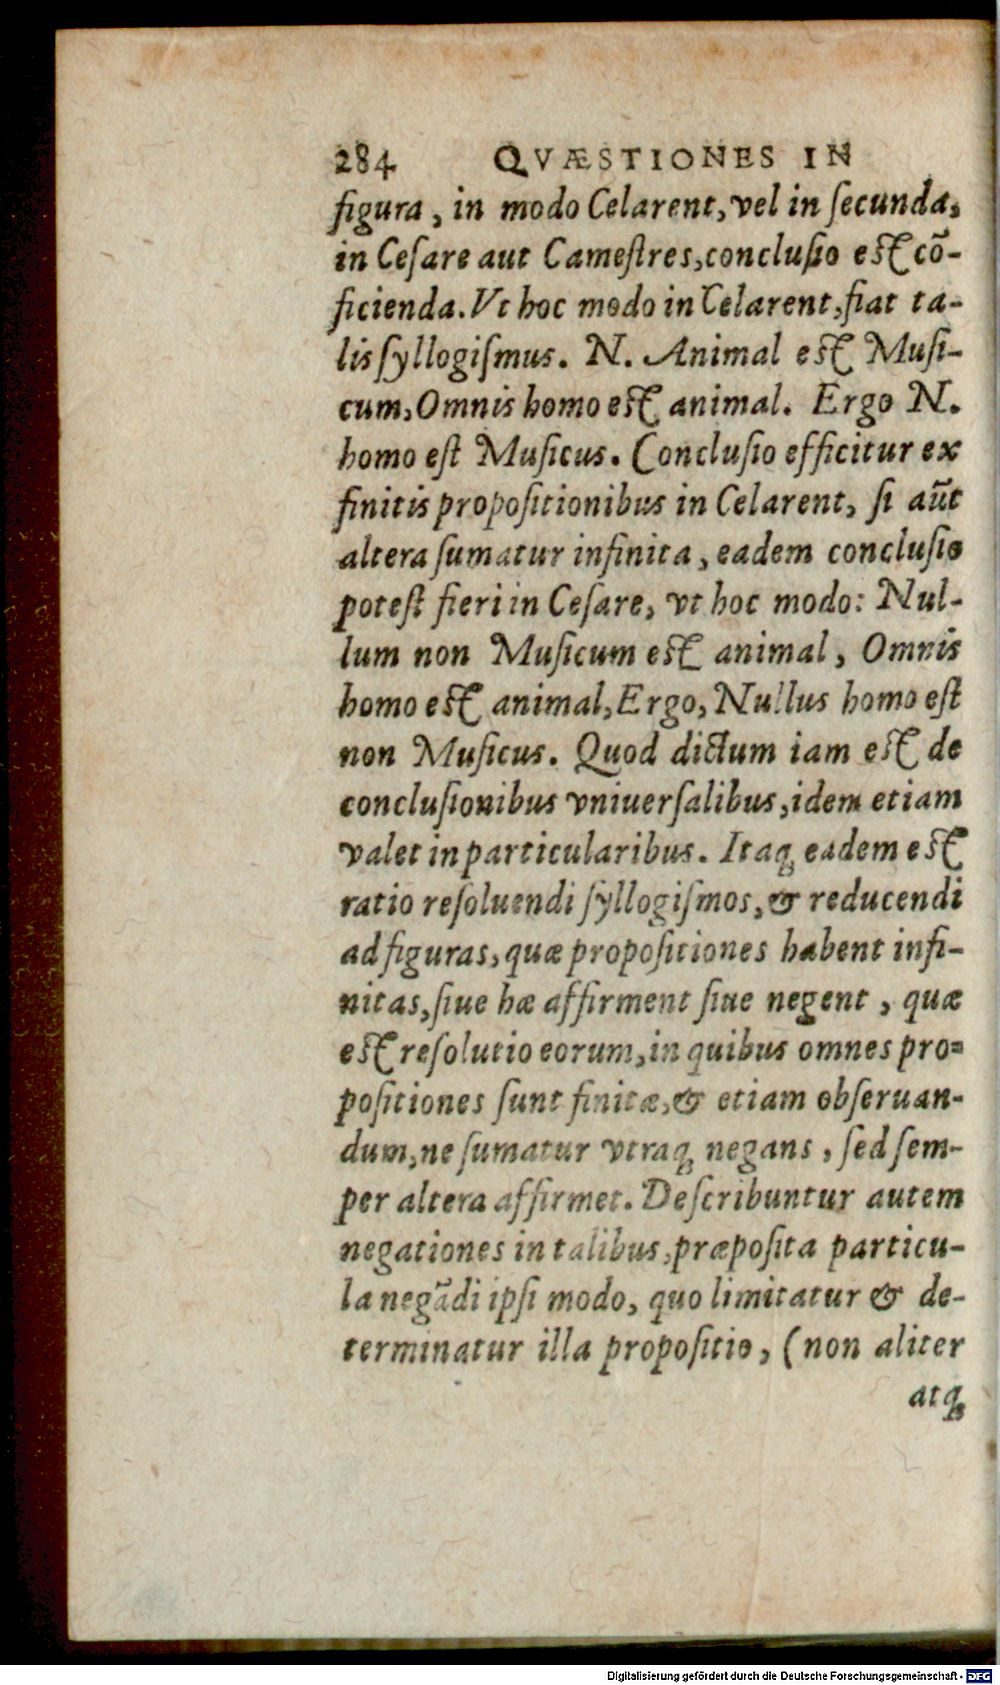 284 QVÆSTIONES IN
figura, in modo Celarent, vel in ſecunda,
in Ceſare aut Cameſtres, concluſio eſt cō-
ficienda. Vt hoc modo in Celarent, fiat ta-
lis ſyllogiſmus. N. Animal eſt Muſi-
cum, Omnis homo eſt animal. Ergo N.
homo eſt Muſicus. Concluſio efficitur ex
finitis propoſitionibus in Celarent, ſi aūt
altera ſumatur infinita, eadem concluſio
poteſt fieri in Ceſare, vt hoc modo: Nul-
lum non Muſicum eſt animal, Omnis
homo eſt animal, Ergo, Nullus homo eſt
non Muſicus. Quod dictum iam eſt de
concluſionibus vniuerſalibus, idem etiam
valet in particularibus. Itaq; eadem eſt
ratio reſoluendi ſyllogiſmos, & reducendi
ad figuras, quæ propoſitiones habent infi-
nitas, ſiue hæ affirment ſiue negent, quæ
eſt reſolutio eorum, in quibus omnes pro-
poſitiones ſunt finitæ, & etiam obſeruan-
dum, ne ſumatur vtraq; negans, ſed ſem-
per altera affirmet. Deſcribuntur autem
negationes in talibus, præpoſita particu-
la negādi ipſi modo, quo limitatur & de-
terminatur illa propoſitio, (non aliter
atq;
Digitalisierung gefördert durch die Deutsche Forschungsgemeinschaft - DFG